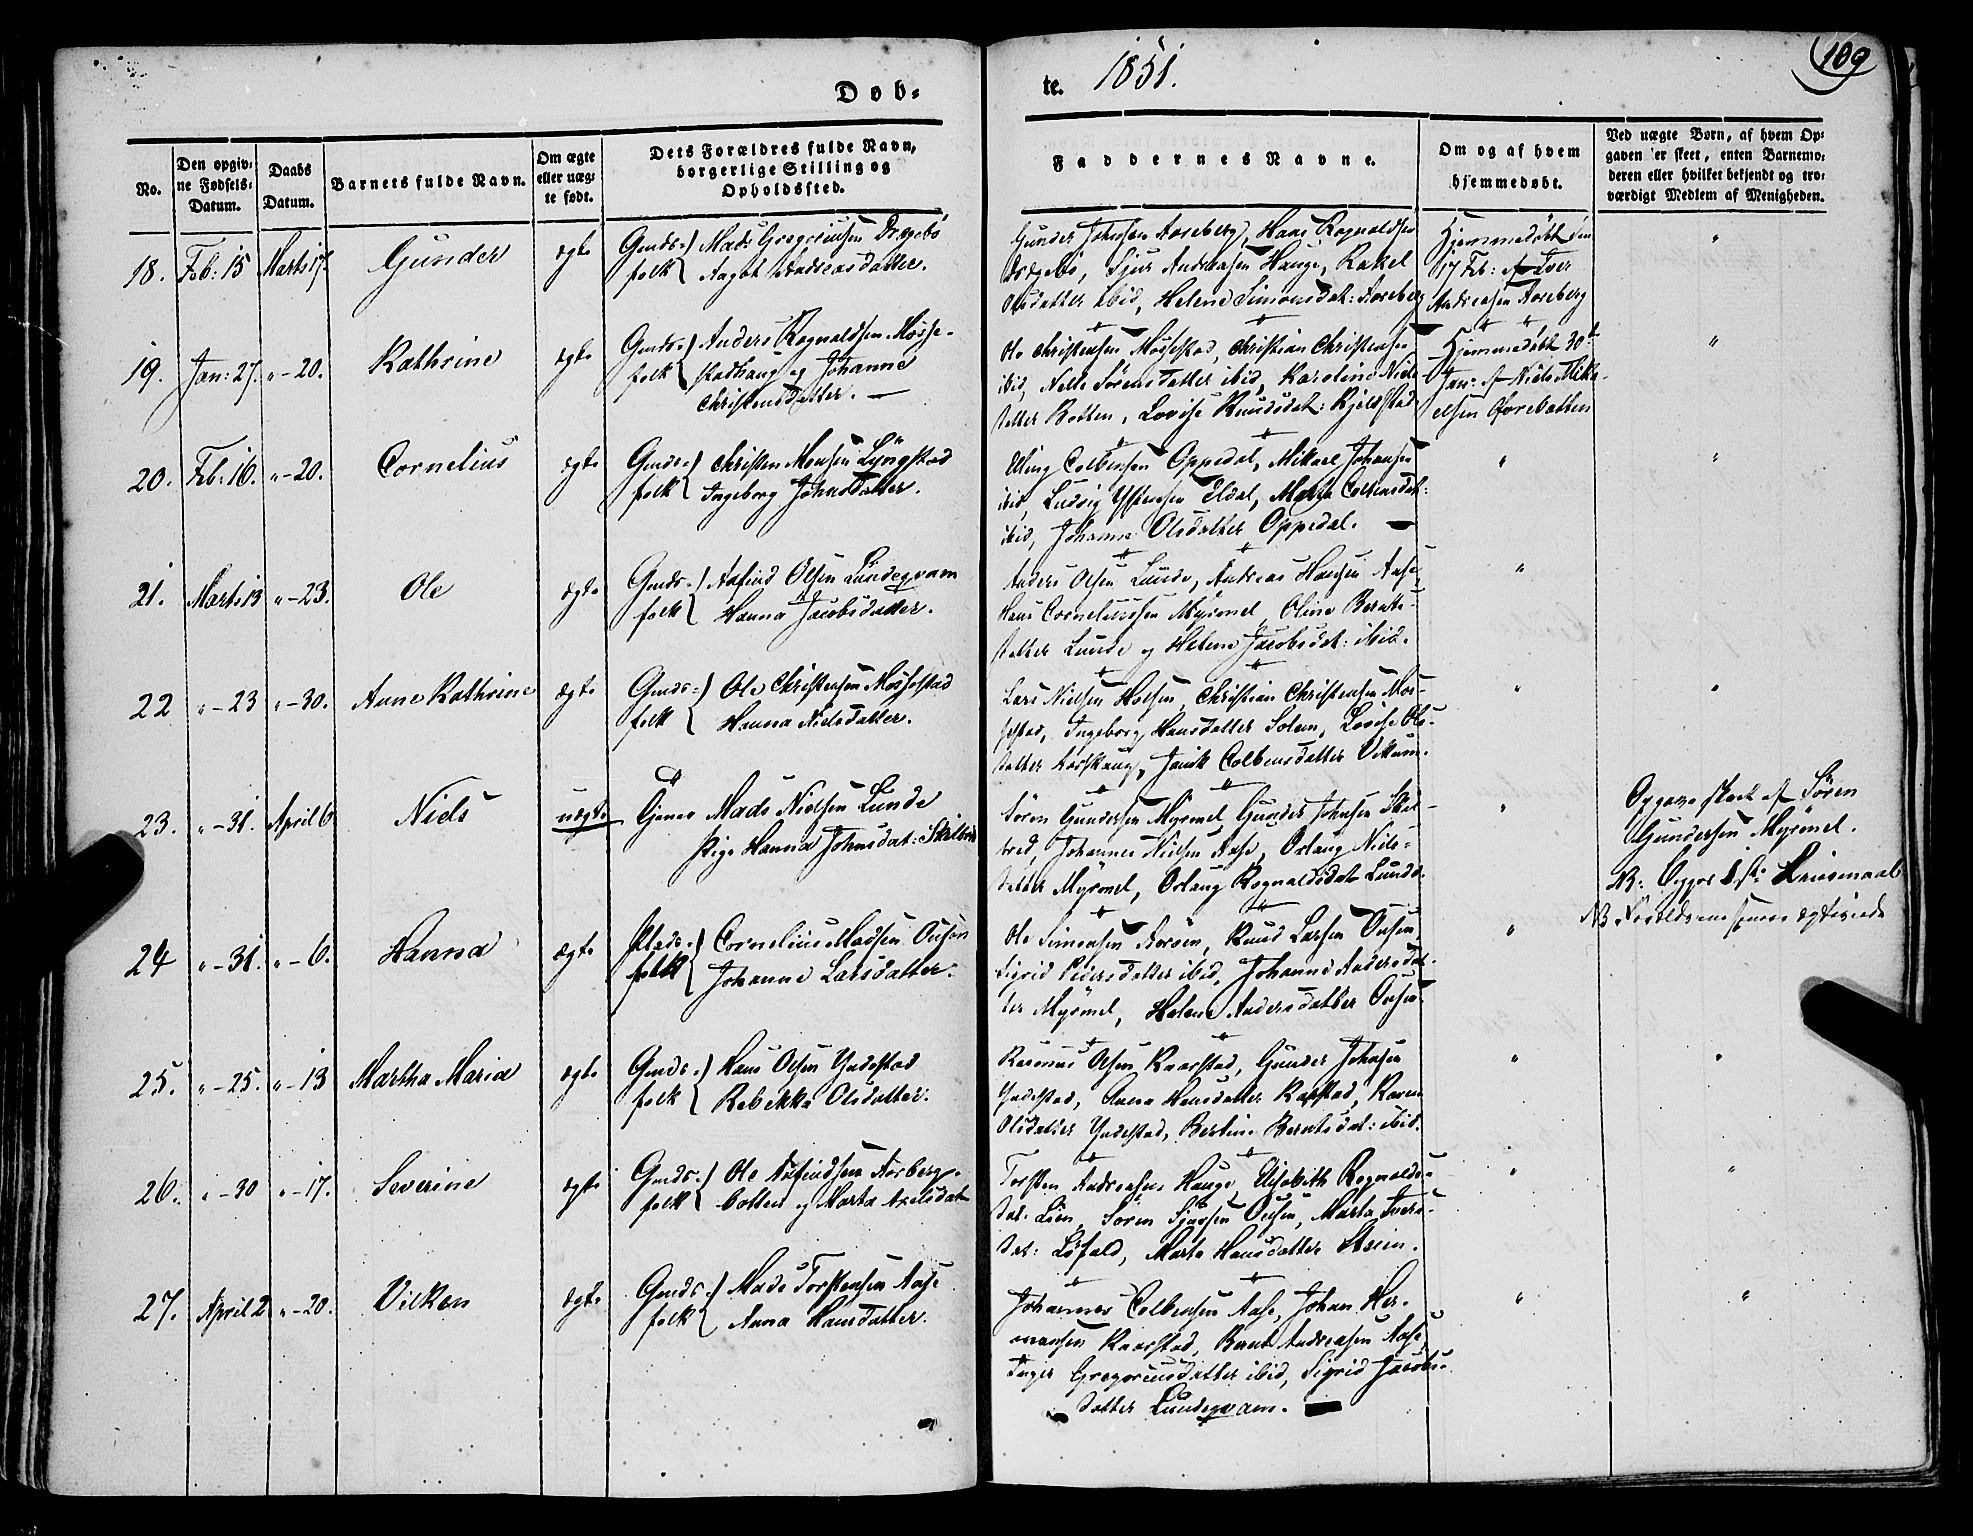 109
Døb-
te. 1851.
No.
Den opgiv-
ne Fødsels-
Datum.
Daabs
Datum.
Barnets fulde Navn.
Om ægte
eller uæg-
te født.
Dets Forældres fulde Navn,
borgerlige Stilling og
Opholdssted.
Faddernes Navne.
Om og af hvem
hjemmedøbt.
Ved uægte Børn, af hvem Op-
gaven er skeet, enten Barnemo-
deren eller hvilket bekjendt og tro-
værdigt Medlem af Menigheden.
18. Feb: 15 Marts 17. Gunder ægte
Gmds- folk
Mads Gregoriussen Dregebø
Aagot Andreasdatter.
Gunder Johnsen Aareberg, Hans Rognaldsen
Dregebø, Sjur Andreasen Hauge, Rakel
Olsdatter ibid, Helene Simonsdat: Aareberg
Hjemmedøbt den
17 Feb: af Iver
Andreasen Aareberg
"
19. Jan: 27. " - 20. Kathrine ægte
Gmds- folk
Anders Rognaldsen Møsse-
stadhaug og Johanne
Christensdatter. —
Ole Christensen Møssestad, Christian Christensen
ibid, Nelle Sørensdatter ibid, Karoline Niels-
datter Botten, Lovise Knudsdat: Kjelsstad
Hjemmedøbt 30te
Jan: af Niels Mika-
elsen Øvrebotten
"
20. Feb: 16. " - 20. Cornelius ægte
Gmds- folk
Christen Monsen Lyngstad
Ingeborg Johnsdatter.
Elling Colbensen Oppedal, Mikael Johansen
ibid, Ludvig Eldal, Marta Colbensdat:
ibid, Johanne Olsdatter Oppedal. —
"
"
21. Marts 13 " - 23. Ole ægte
Gmds- folk
Aafind Olsen Lundeqvam
og
Hanna Jacobsdatter.
Anders Olsen Lunde, Andreas Hansen Aase,
Hans Corneliussen Myrmel, Oline Bernts-
datter Lunde og Helene Jacobsdat: ibid.
"
22 " - 23 " - 30. Anne Kathrine ægte
Gmds- folk
Ole Christensen Møssestad
Hanna Nielsdatter.
Lars Nielsen Holsen, Christian Christensen Møs-
sestad, Ingeborg Hansdatter Solem, Lovise Ols-
datter Aarskaug, Jenik Colbensdatter Viken.
"
"
23. " - 31. April 6 Niels uægte
Tjener Mads Nielsen Lunde
Pige Hanna Johnsdat:
Søren Gundersen Myrmel, Gunder Johnsen Skil-
bred, Johannes Nielsen Aase, Orlaug Niels-
datter Myrmel, Orlaug Rognaldsdat Lunde.
"
Opgave skeet af Søren
Gundersen Myrmel.
NB: 1ste Leiermaal
NB Forældrene senere ægteviede
24 " - 31. " - 6. Hanna ægte
Plads- folk
Cornelius Madsen Ousen
Johanne Larsdatter.
Ole Simensen Aarøen, Knud Larsen Ousen,
Sigrid Pedersdatter ibid, Johanne Andersdat-
ter Myrmel, Helene Andersdatter Ousen
"
25. " - 25. " - 13 Martha Maria ægte
Gmds- folk
Hans Olsen Yndestad
Rebekka Olsdatter.
Rasmus Olsen Kaarstad, Gunder Johnsen
Yndestad, Anna Hansdatter Kaastad, Karen
Olsdatter Yndestad, Bertine Berntsdat: ibid.
"
"
26. " - 30 " - 17. Severine ægte
Gmds- folk
Ole Aafindsen Aarberg-
botten og Marta Axelsdat
Torsten Andreasen Hauge, Elisabeth Rognalds-
dat: Lien, Søren Sjursen Ousen, Marta Ivers-
dat: Løfald, Marta Hansdatter Steien.
"
"
27. April 2 " - 20. Vilken ægte
Gmds- folk
Mads Torstensen Aase
Anna Hansdatter.
Johannes Colbensen Aase, Johan Her-
mansen Kaarstad, Bernt Andreasen Aase,
Inger Gregoriusdatter ibid, Sigrid Jacobs-
datter Lundeqvam. —
"
"